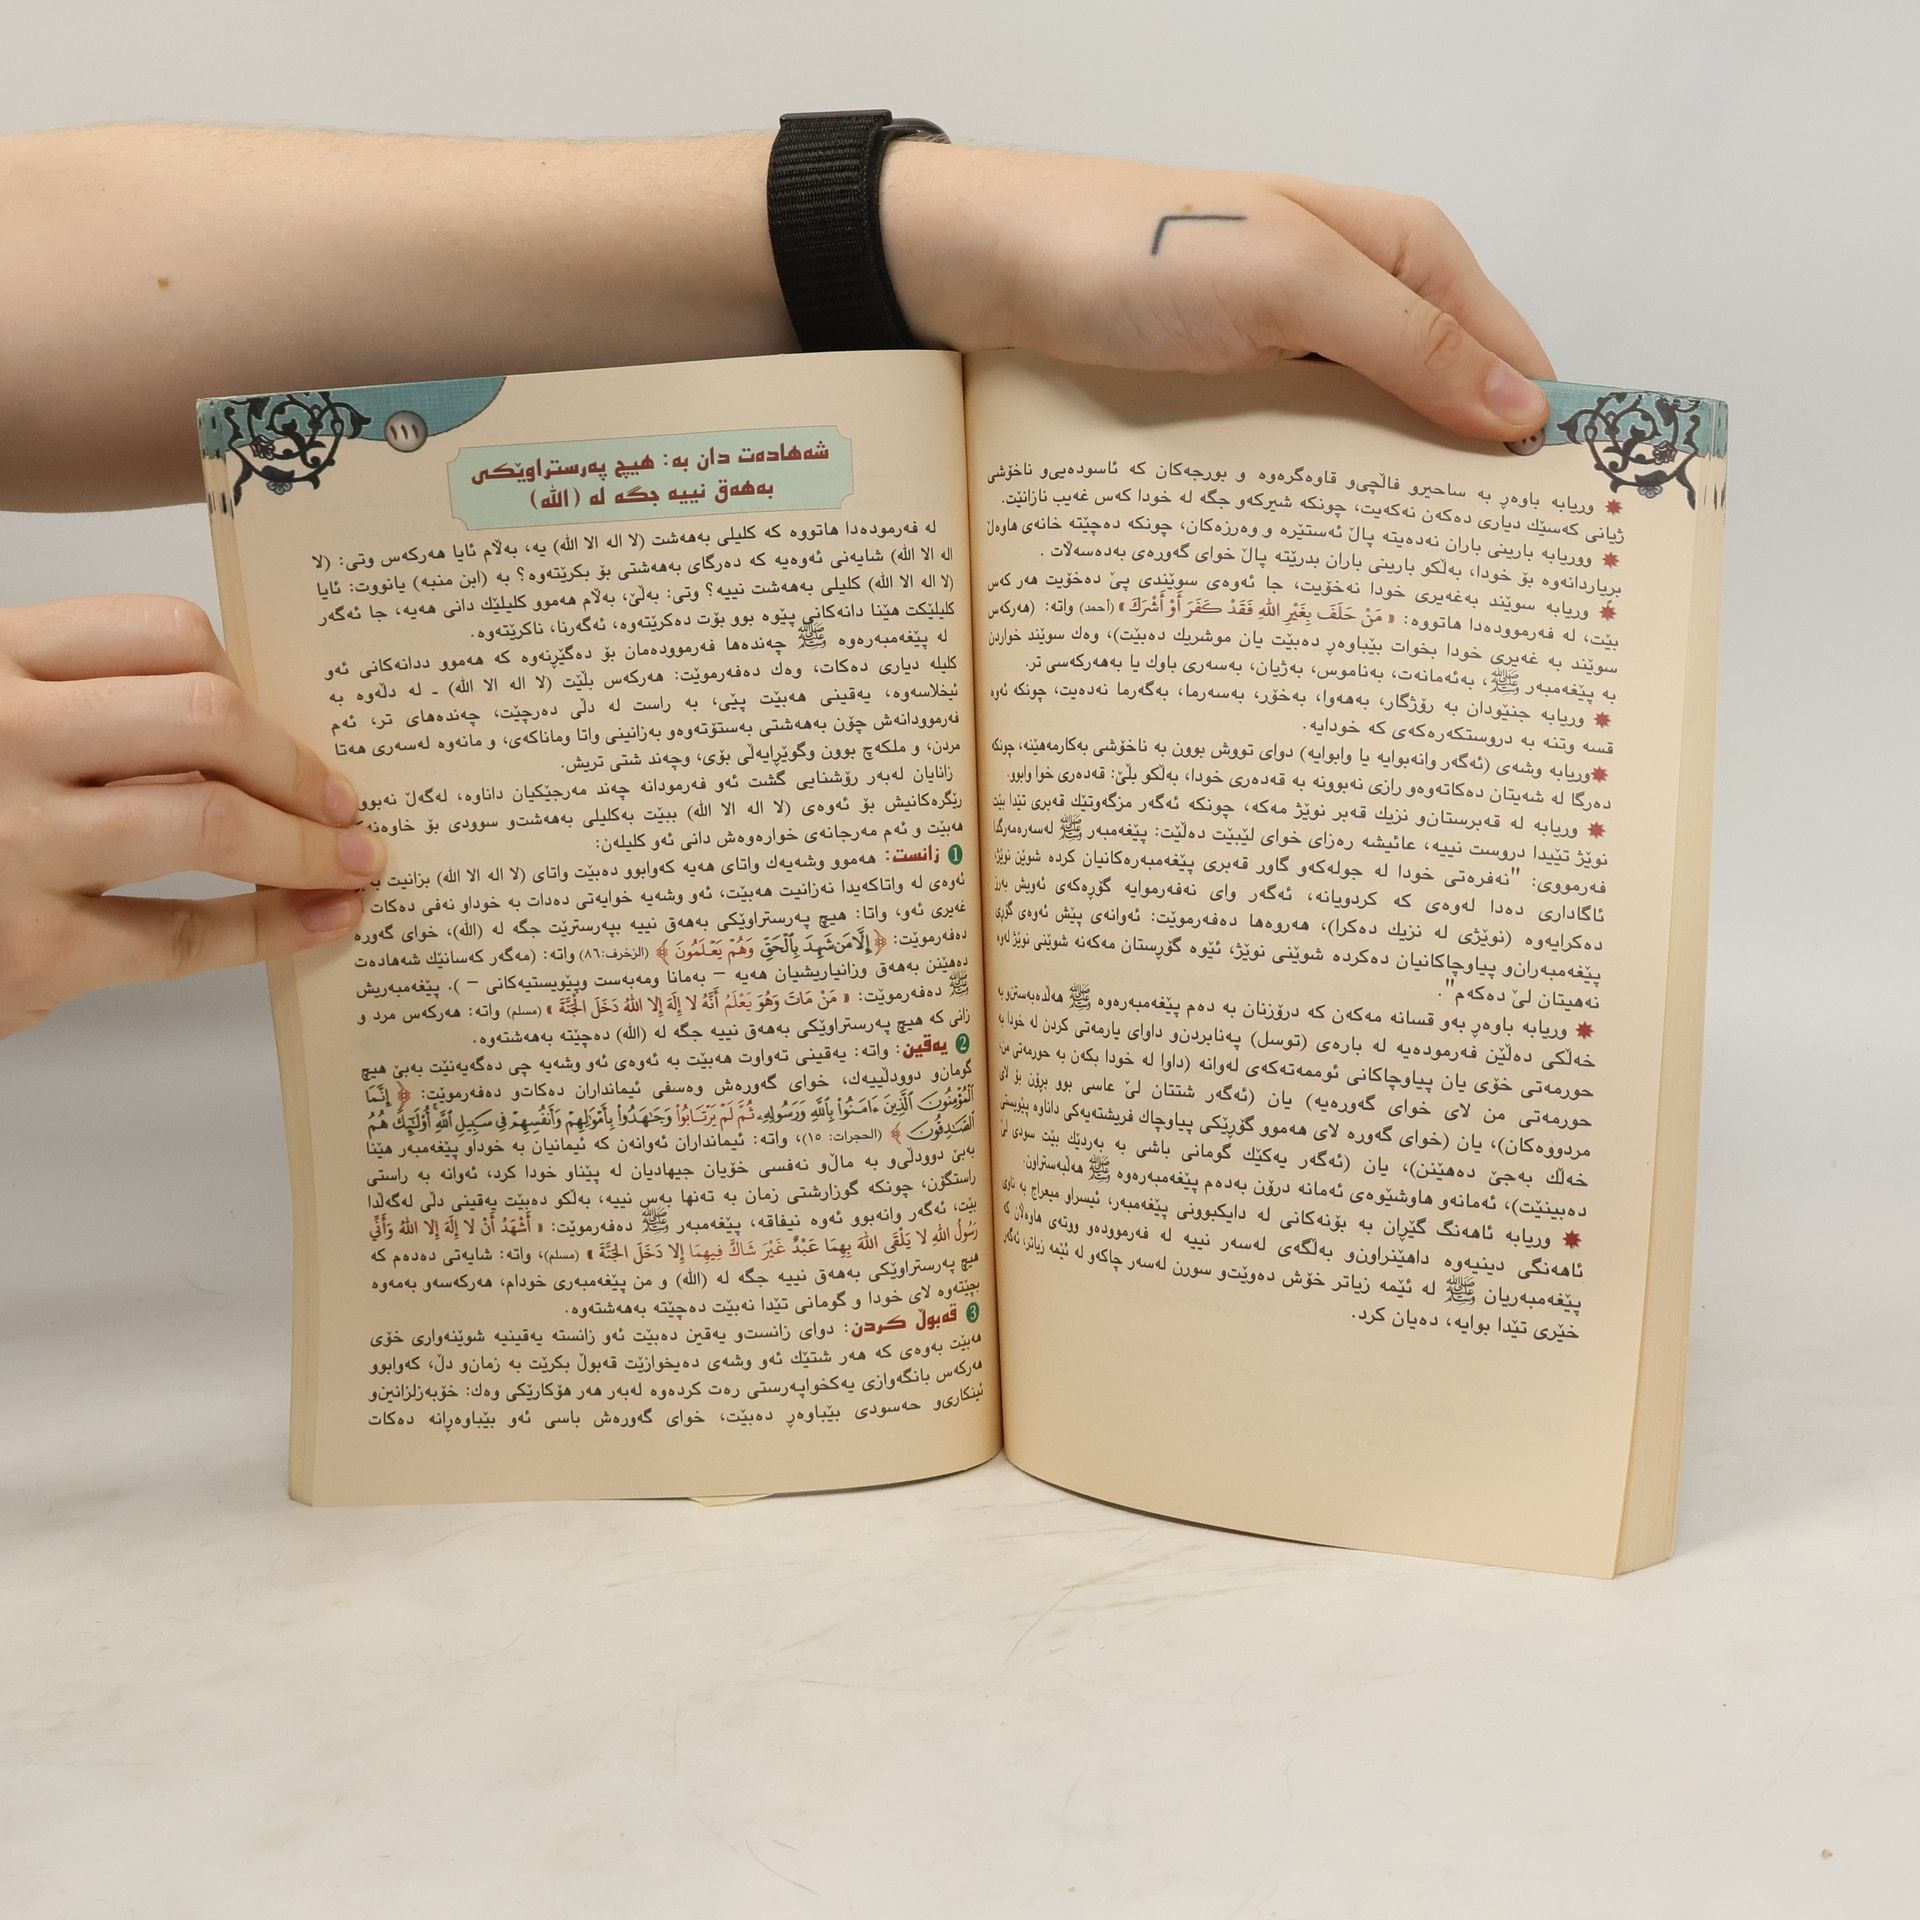 وریابە باوەڕ بە ساحیرو فاڵچی‌و قاوەگرەوە و بورجەکان کە ئاسودەیی‌و ناخۆشی
ژیانی کەسێك دیاری دەکەن نەکەیت، چونکە شیرکەو جگە لە خودا کەس غەیب نازانێت.
ووریابە بارینی باران نەدەیتە پاڵ ئەستێرە و وەرزەکان، چونکە دەچێتە خانەی هاوەڵ
بریاردانەوە بۆ خودا، بەڵکو بارینی باران بدرێتە پاڵ خوای گەورەی بەدەسەڵات .
وریابە سوێند بەغەیری خودا نەخۆیت، جا ئەوەی سوێندی پێ دەخۆیت هەر کەس
بێت، لە فەرموودەدا هاتووە: « مَنْ حَلَفَ بِغَيْرِ اللهِ فَقَدْ كَفَرَ أَوْ أَشْرَكَ » (أحمد) واتە: (هەرکەس
سوێند بە غەیری خودا بخوات بێباوەڕ دەبێت یان موشریك دەبێت)، وەك سوێند خواردن
بە پێغەمبەر ﷺ، بەئەمانەت، بەناموس، بەژیان، بەسەری باوك یا بەهەرکەسی تر.
وریابە جنێودان بە رۆژگار، بەهەوا، بەخۆر، بەسەرما، بەگەرما نەدەیت، چونکە ئەوە
قسە وتنە بە دروستکەرەکەی کە خودایە.
وریابە وشەی (ئەگەر وانەبوایە یا وابوایە) دوای تووش بوون بە ناخۆشی بەکارمەهێنە، چونکە
دەرگا لە شەیتان دەکاتەوەو رازی نەبوونە بە قەدەری خودا، بەڵکو بڵێ: قەدەری خوا وابوو.
وریابە لە قەبرستان‌و نزیك قەبر نوێژ مەکە، چونکە ئەگەر مزگەوتێك قەبری تێدا بێت
نوێژ تێیدا دروست نییە، عائیشە رەزای خوای لێبێت دەڵێت: پێغەمبەر ﷺ لەسەرەمەرگدا
فەرمووی: "نەفرەتی خودا لە جولەکەو گاور قەبری پێغەمبەرەکانیان کردە شوێن نوێژ،
ئاگاداری دەدا لەوەی کە کردویانە، ئەگەر وای نەفەرموایە گۆڕەکەی ئەویش بەرز
دەکرایەوە (نوێژی لە نزیك دەکرا)، هەروەها دەفەرموێت: ئەوانەی پێش ئەوەی گۆڕی
پێغەمبەران‌و پیاوچاکانیان دەکردە شوێنی نوێژ، ئێوە گۆڕستان مەکەنە شوێنی نوێژ لەوە
نەهیتان لێ دەکەم".
وریابە باوەڕ بەو قسانە مەکەن کە درۆزنان بە دەم پێغەمبەرەوە ﷺ هەڵدەبەستن‌و بە
خەڵکی دەڵێن فەرمودەیە لە بارەی (توسل) پەنابردن‌و داوای یارمەتی کردن لە خودا بە
حورمەتی خۆی یان پیاوچاکانی ئوممەتەکەی لەوانە (داوا لە خودا بکەن بە حورمەتی من،
حورمەتی من لای خوای گەورەیە) یان (ئەگەر شتتان لێ عاسی بوو برۆن بۆ لای
مردووەکان)، یان (خوای گەورە لای هەموو گۆڕێکی پیاوچاك فریشتەیەکی داناوە پێویستی
خەڵك بەجێ دەهێنن)، یان (ئەگەر یەکێك گومانی باشی بە بەردێك بێت سودی لێ
دەبینێت)، ئەمانەو هاوشێوەی ئەمانە درۆن بەدەم پێغەمبەرەوە ﷺ هەڵبەستراون.
وریابە ئاهەنگ گێران بە بۆنەکانی لە دایکبوونی پێغەمبەر، ئیسراو میعراج بە ناوی
ئاهەنگی دینیەوە داهێنراون‌و بەڵگەی لەسەر نییە لە فەرموودەو ووتەی هاوەڵان کە
پێغەمبەریان ﷺ لە ئێمە زیاتر خۆش دەوێت‌و سورن لەسەر چاکەو لە ئێمە زیاتر، ئەگەر
خێری تێدا بوایە، دەیان کرد.
١١١
شەهادەت دان بە: هیچ پەرستراوێکی
بەهەق نییە جگە لە (اللە)
لە فەرمودەدا هاتووە کە کلیلی بەهەشت (لا الە الا اللە) یە، بەڵام ئایا هەرکەس وتی: (لا
الە الا اللە) شایەنی ئەوەیە کە دەرگای بەهەشتی بۆ بکرێتەوە؟ بە (ابن منبە) یانووت: ئایا
(لا الە الا اللە) کلیلی بەهەشت نییە؟ وتی: بەڵێ، بەڵام هەموو کلیلێك دانی هەیە، جا ئەگەر
کلیلێکت هێنا دانەکانی پێوە بوو بۆت دەکرێتەوە، ئەگەرنا، ناکرێتەوە.
لە پێغەمبەرەوە ﷺ چەندەها فەرموودەمان بۆ دەگێڕنەوە کە هەموو ددانەکانی ئەو
کلیلە دیاری دەکات، وەك دەفەرموێت: هەرکەس بڵێت (لا الە الا اللە) ـ لە دڵەوە بە
ئیخلاسەوە، یەقینی هەبێت پێی، بە راست لە دڵی دەرچێت، چەندەهای تر، ئەم
فەرموودانەش چۆن بەهەشتی بەستۆتەوەو بەزانینی واتا وماناکەی، و مانەوە لەسەری هەتا
مردن، و ملکەچ بوون وگوێڕایەڵی بۆی، وچەند شتی تریش.
زانایان لەبەر رۆشنایی گشت ئەو فەرمودانە چەند مەرجێکیان داناوە، لەگەڵ نەبوو
رێگرەکانیش بۆ ئەوەی (لا الە الا اللە) ببێت بەکلیلی بەهەشت‌و سوودی بۆ
هەبێت و ئەم مەرجانەی خوارەوەش دانی ئەو کلیلەن:
1 زانست: هەموو وشەیەك واتای هەیە کەوابوو دەبێت واتای (لا الە الا اللە) بزانیت
ئەوەی لە واتاکەیدا نەزانیت هەبێت، ئەو وشەیە خوایەتی دەدات بە خوداو نەفی دەکات
غەیری ئەو، واتا: هیچ پەرستراوێکی بەهەق نییە بپەرسترێت جگە لە (اللە)، خوای گەورە
دەفەرموێت: ﴿إِلَّا مَن شَهِدَ بِٱلۡحَقِّ وَهُمۡ يَعۡلَمُونَ﴾ (الزخرف:٨٦) واتە: (مەگەر کەسانێك شەهادەت
دەهێنن بەهەق وزانیاریشیان هەیە – بەمانا ومەبەست وپێویستیەکانی – ). پێغەمبەریش
ﷺ دەفەرموێت: « مَنْ مَاتَ وَهُوَ يَعْلَمُ أَنَّهُ لا إِلَهَ إِلا اللهُ دَخَلَ الجَنَّةَ » (مسلم) واتە: هەرکەس مرد و
زانی کە هیچ پەرستراوێکی بەهەق نییە جگە لە (اللە) دەچێتە بەهەشتەوە.
2 یەقین: واتە: یەقینی تەواوت هەبێت بە ئەوەی ئەو وشەیە چی دەگەیەنێت بەبێ هیچ
گومان‌و دوودڵییەك، خوای گەورەش وەسفی ئیمانداران دەکات‌و دەفەرموێت: ﴿ إِنَّمَا
ٱلۡمُؤۡمِنُونَ ٱلَّذِينَ ءَامَنُواْ بِٱللَّهِ وَرَسُولِهِۦ ثُمَّ لَمۡ يَرۡتَابُواْ وَجَٰهَدُواْ بِأَمۡوَٰلِهِمۡ وَأَنفُسِهِمۡ فِي سَبِيلِ ٱللَّهِۚ أُوْلَٰٓئِكَ هُمُ
ٱلصَّٰدِقُونَ ﴾ (الحجرات: ١٥)، واتە: ئیمانداران ئەوانەن کە ئیمانیان بە خوداو پێغەمبەر هێنا
بەبێ دوودڵی‌و بە ماڵ‌و نەفسی خۆیان جیهادیان لە پێناو خودا کرد، ئەوانە بە راستی
راستگۆن، چونکە گوزارشتی زمان بە تەنها بەس نییە، بەڵکو دەبێت یەقینی دڵی لەگەڵدا
بێت، ئەگەر وانەبوو ئەوە نیفاقە، پێغەمبەر ﷺ دەفەرموێت: « أَشْهَدُ أَنْ لا إِلَهَ إِلا اللهُ وَأَنِّي
رَسُولُ اللهِ لا يَلْقَى اللهَ بِهِمَا عَبْدٌ غَيْرَ شَاكٍّ فِيهِمَا إِلا دَخَلَ الجَنَّةَ » (مسلم)، واتە: شایەتی دەدەم کە
هیچ پەرستراوێکی بەهەق نییە جگە لە (اللە) و من پێغەمبەری خودام، هەرکەسەو بەمەوە
بچێتەوە لای خودا و گومانی تێدا نەبێت دەچێتە بەهەشتەوە.
3 قەبوڵ کردن: دوای زانست‌و یەقین دەبێت ئەو زانستە یەقینیە شوێنەواری خۆی
هەبێت بەوەی کە هەر شتێك ئەو وشەی دەیخوازێت قەبوڵ بکرێت بە زمان‌و دڵ، کەوابوو
هەرکەس بانگەوازی یەکخواپەرستی رەت کردەوە لەبەر هەر هۆکارێکی وەك: خۆبەزلزانین‌و
ئینکاری‌و حەسودی بێباوەڕ دەبێت، خوای گەورەش باسی ئەو بێباوەڕانە دەکات